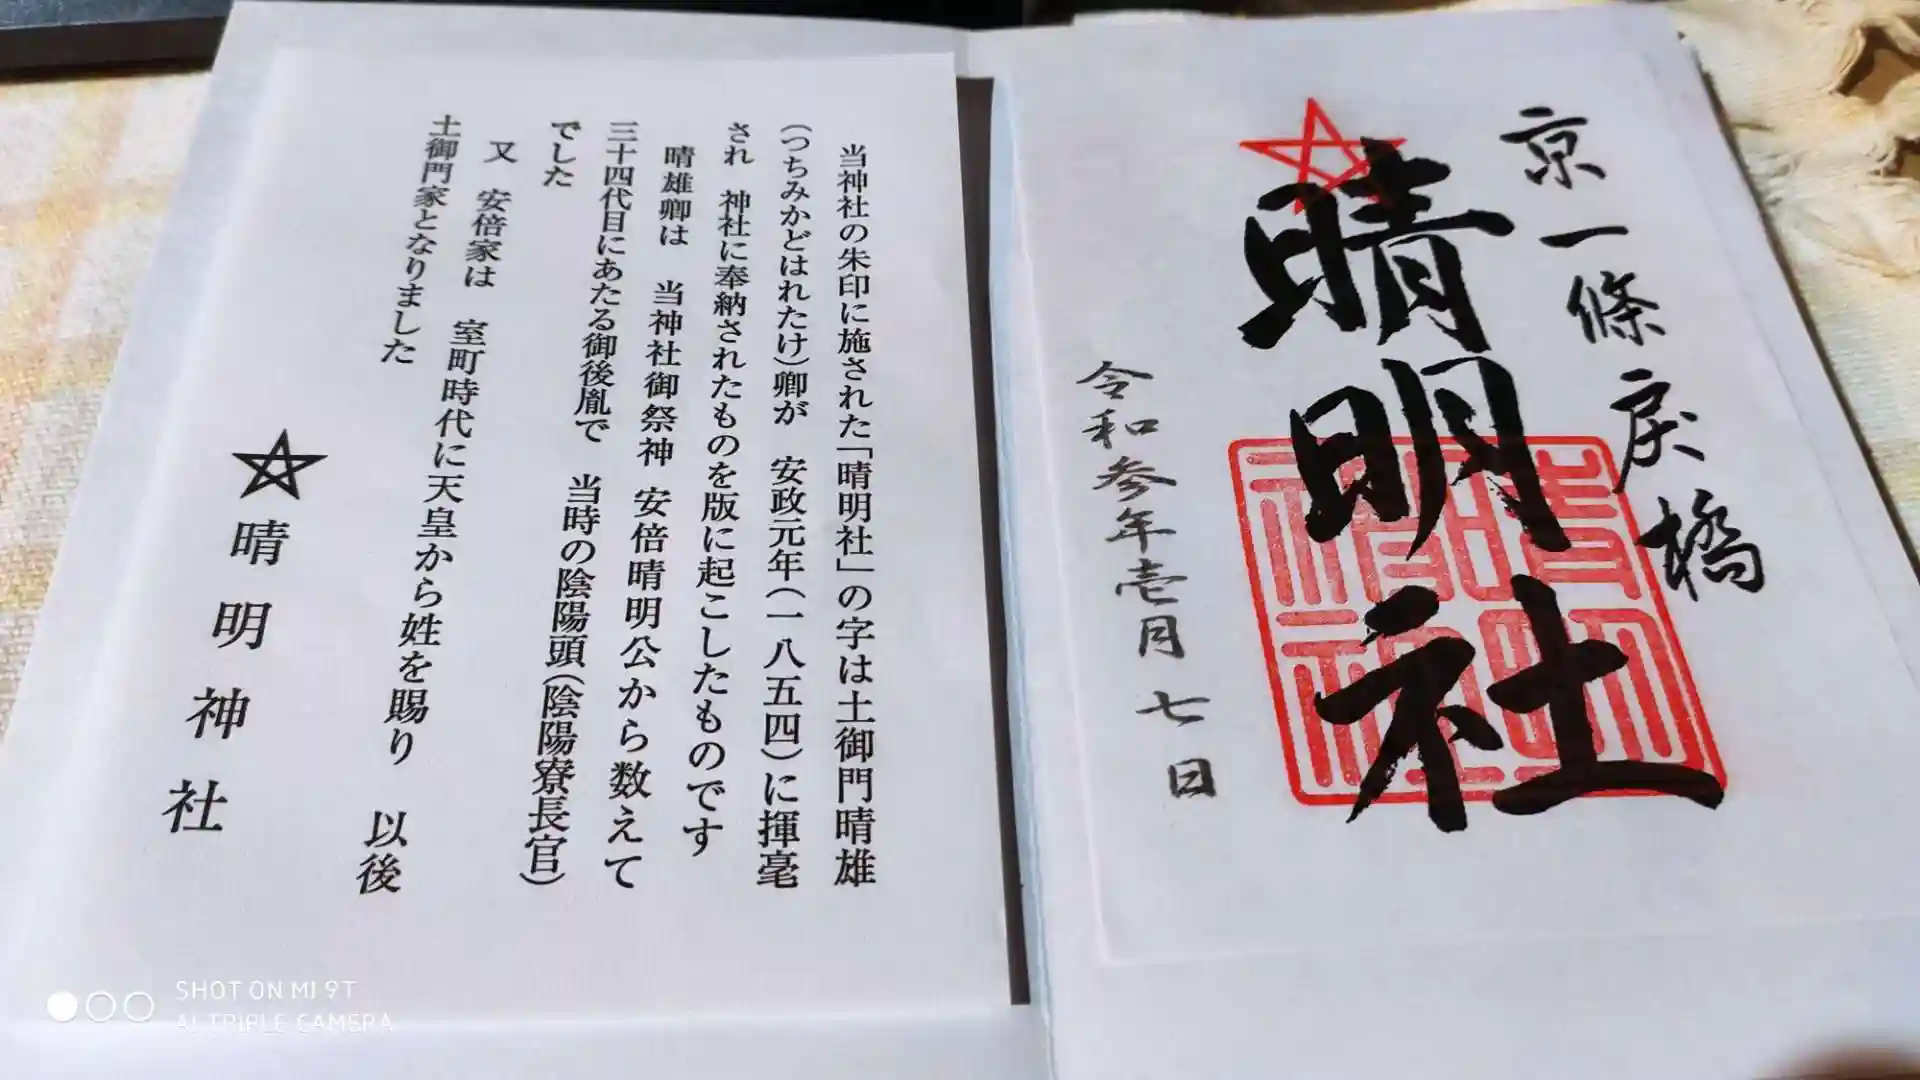 京一條戻橋
晴明社
晴明神社
令和参年壱月七日
当神社の朱印に施された「晴明社」の字は土御門晴雄
(つちみかどはれたけ)卿が 安政元年(一八五四)に揮毫
され 神社に奉納されたものを版に起こしたものです
晴雄卿は 当神社御祭神 安倍晴明公から数えて
三十四代目にあたる御後胤で 当時の陰陽頭(陰陽寮長官)
でした
又 安倍家は 室町時代に天皇から姓を賜り 以後
土御門家となりました
晴明神社
SHOT ON MI 9T
AI TRIPLE CAMERA